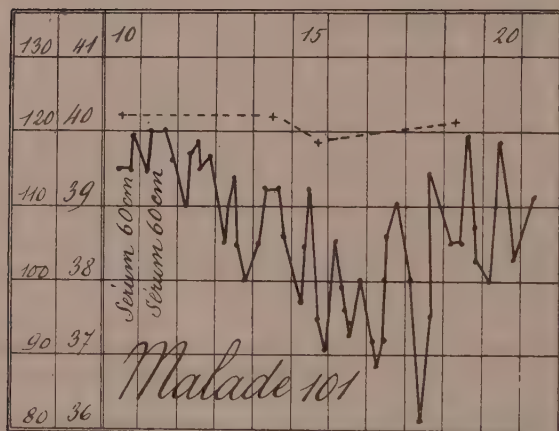 10 15 20
130 41
120 40
110 39
100 38
90 37
80 36
Sérum 60cm
Sérum 60cm
Malade 101